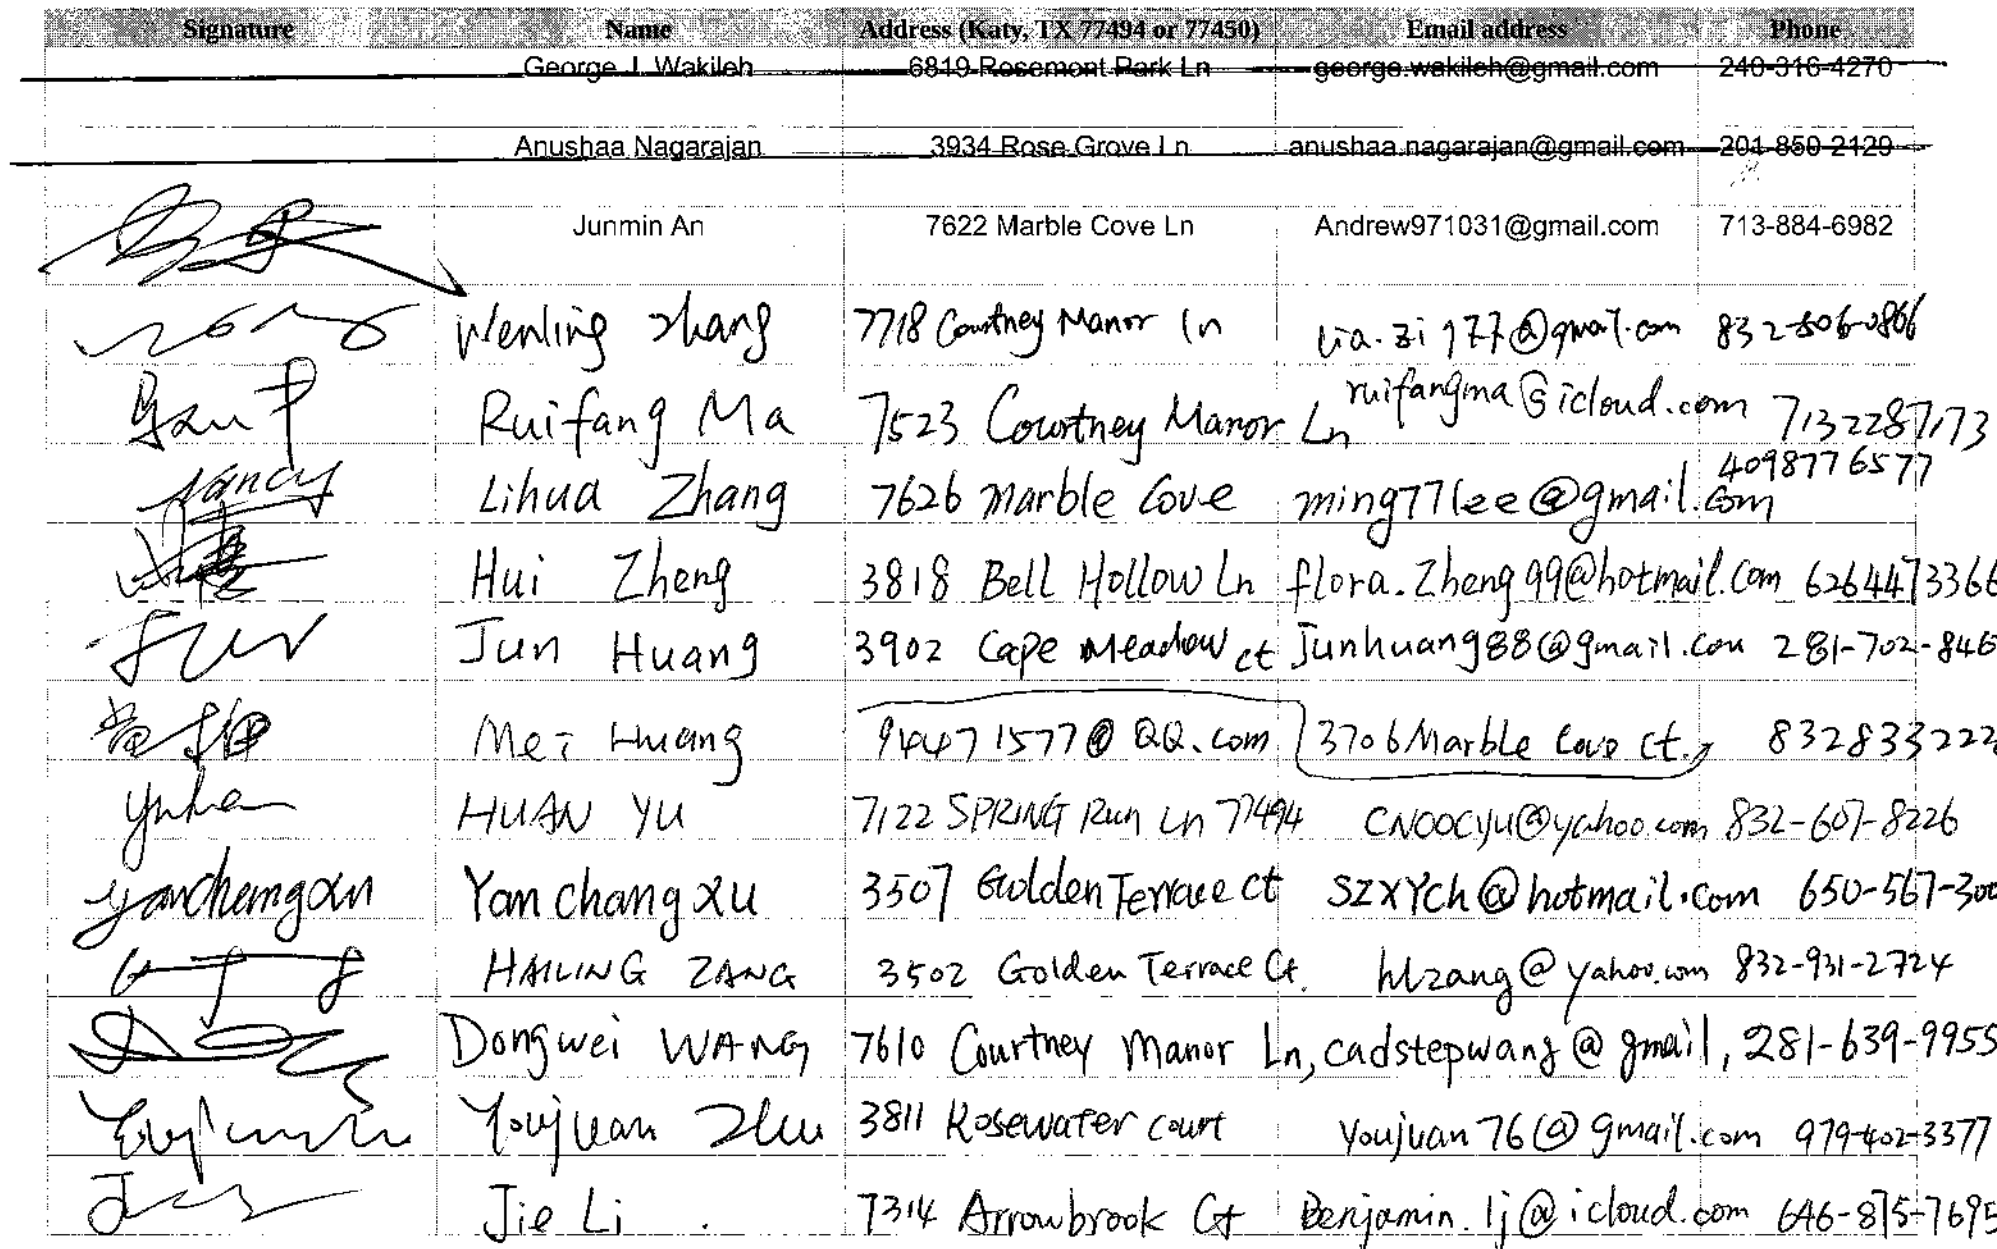 Signature Name Address (Katy, TX 77494 or 77450) Email address Phone
George J. Wakileh 6819 Rosemont Park Ln george.wakileh@gmail.com 240-316-4270
Anushaa Nagarajan 3934 Rose Grove Ln anushaa.nagarajan@gmail.com 201-850-2129
Junmin An 7622 Marble Cove Ln Andrew971031@gmail.com 713-884-6982
Wenling Zhang 7718 Courtney Manor Ln
Ruifang Ma 7523 Courtney Manor Ln ruifangma@icloud.com 7132287173
Nancy Lihua Zhang 7626 Marble Cove ming77lee@gmail.com 4098776577
Hui Zheng 3818 Bell Hollow Ln flora.Zheng99@hotmail.com 6264473366
Jun Huang 3902 Cape Meadow ct Junhuang88@gmail.com 281-702-846
Mei Huang 944471577@QQ.com 3706 Marble Cove Ct. 832833222
HUAN YU 7122 SPRING Run Ln 77494 CNOOCYU@yahoo.com 832-607-8226
Yanchang Xu 3507 Golden Terrace Ct SZXYCh@hotmail.com 650-567-300
HAILING ZANG 3502 Golden Terrace Ct. hlzang@yahoo.com 832-931-2724
Dongwei WANG 7610 Courtney Manor Ln, cadstepwang@gmail, 281-639-9955
Youjuan Zhu 3811 Rosewater court Youjuan76@gmail.com 979-402-3377
Jie Li 7314 Arrowbrook Ct Benjamin.lj@icloud.com 646-875-7695